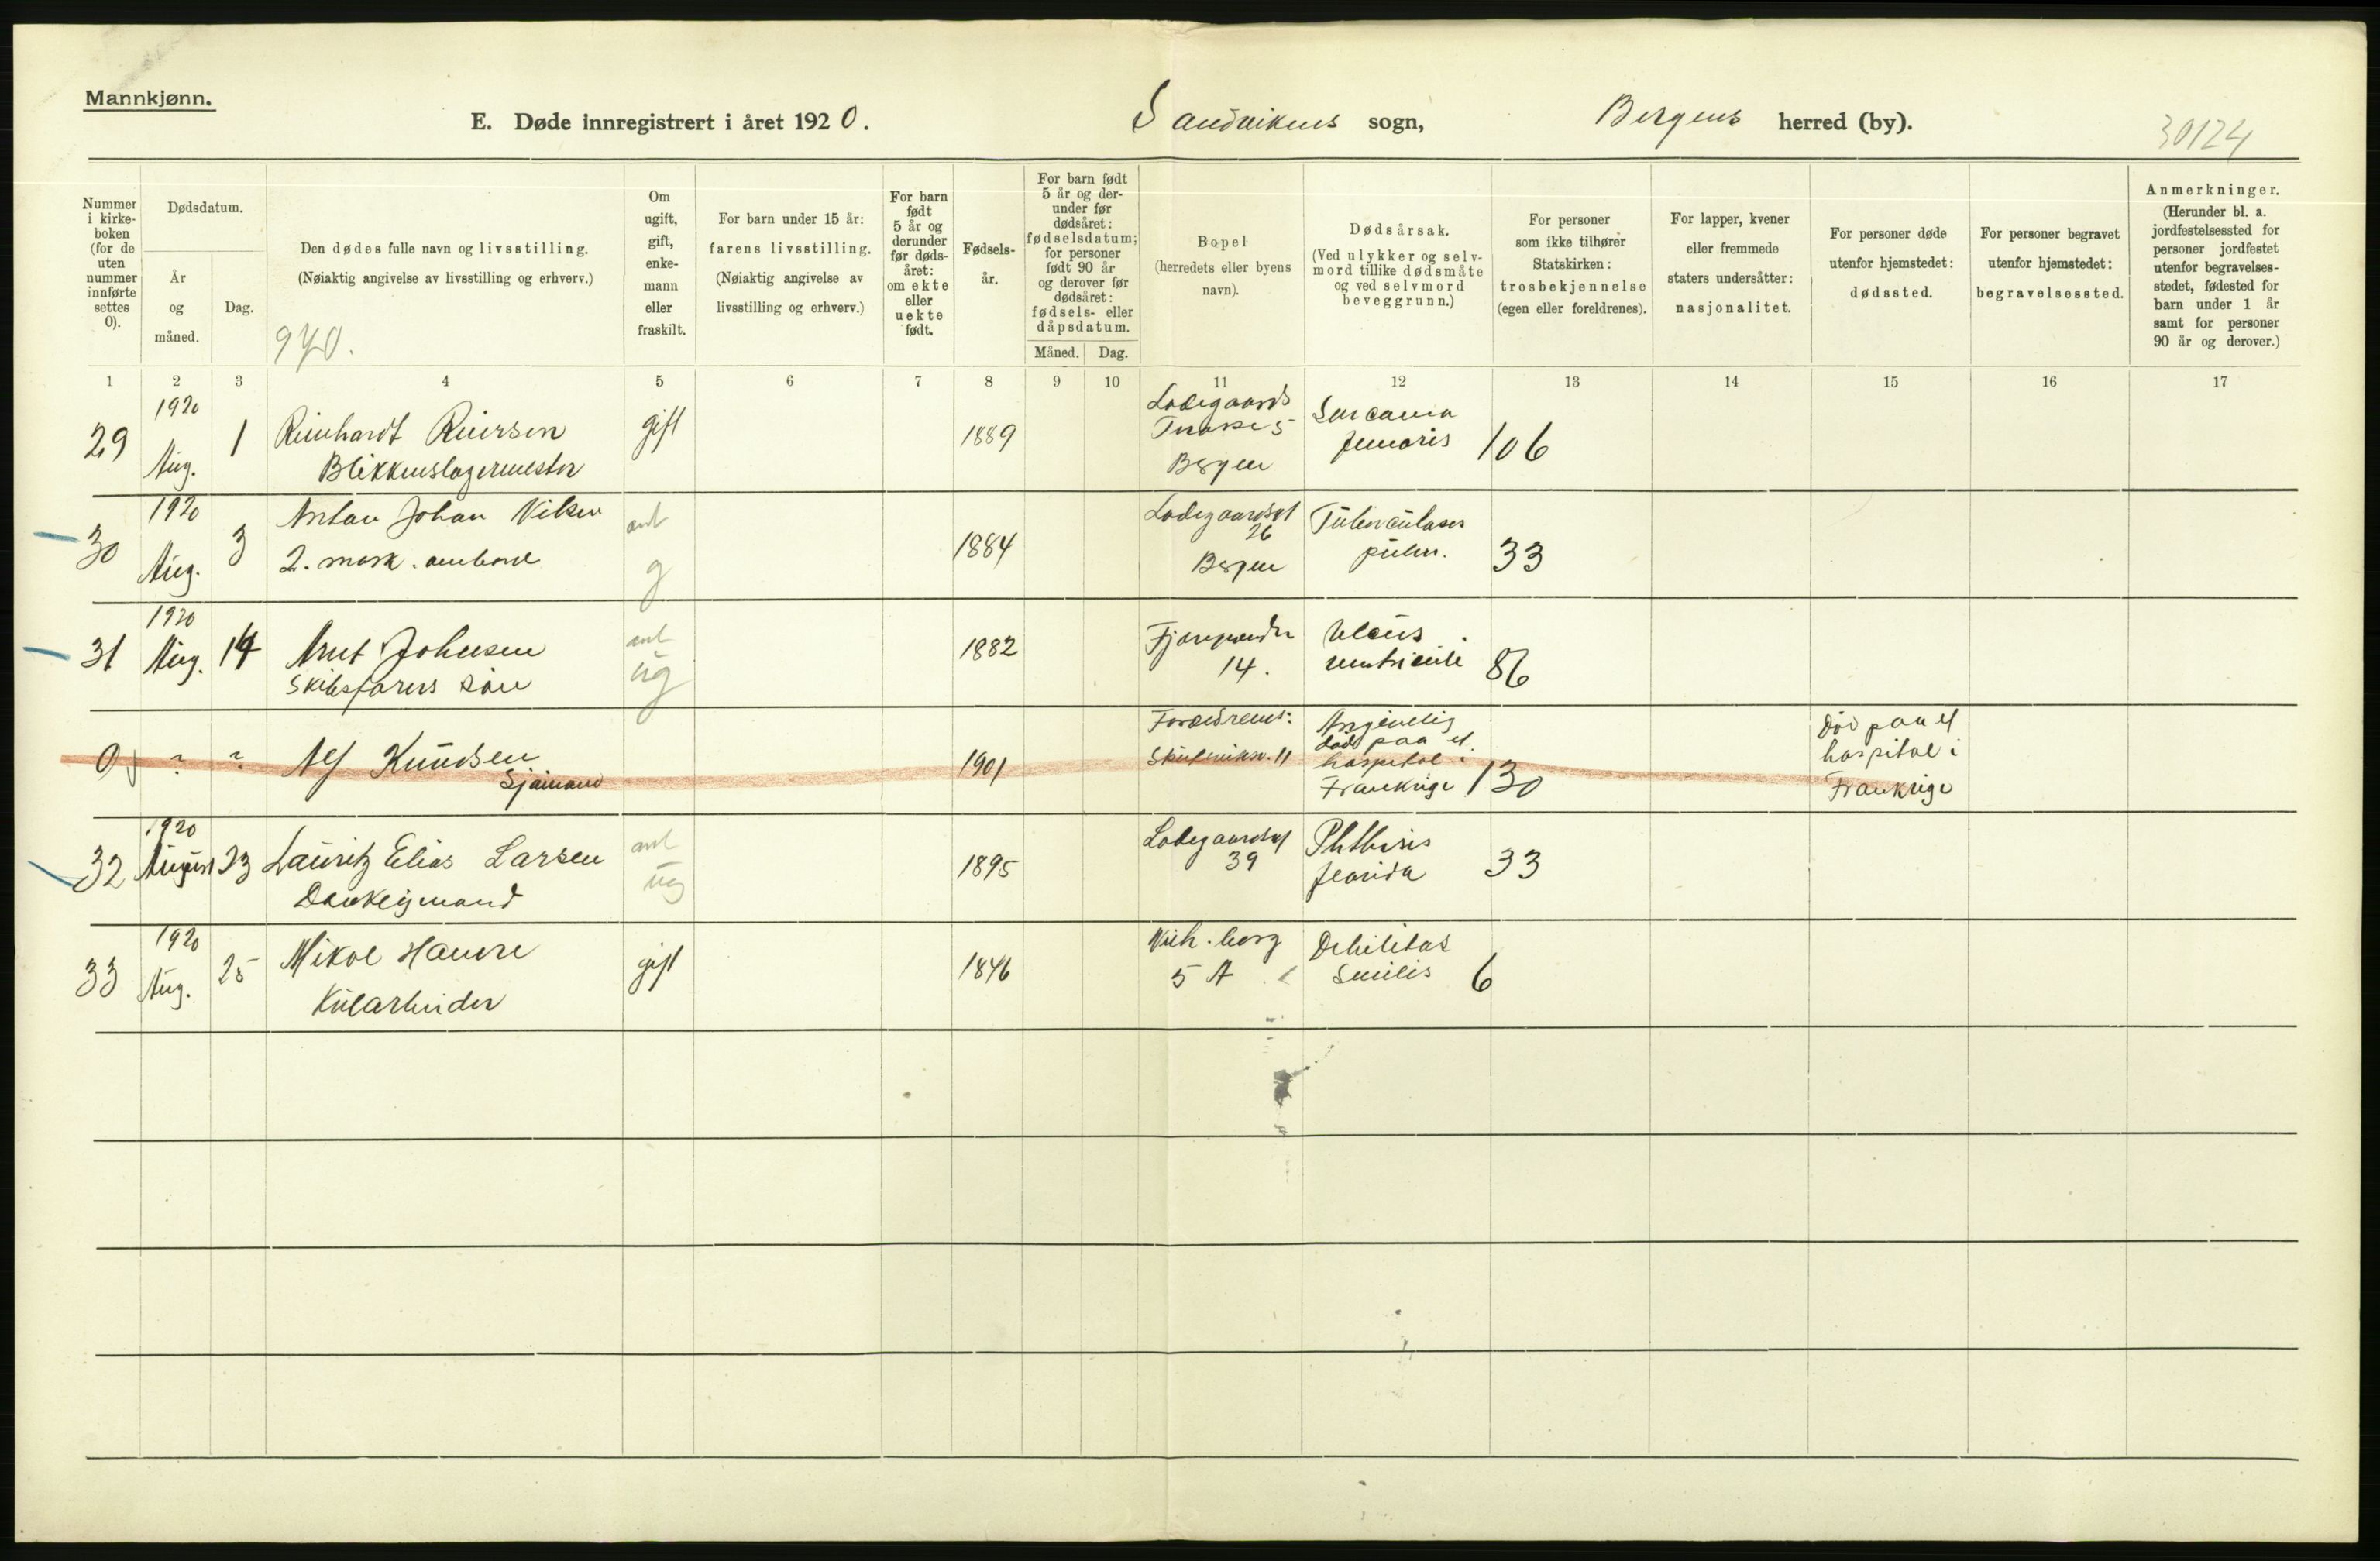 Mannkjønn.
E. Døde innregistrert i året 1920. Sandvikens sogn, Bergens herred (by). 30124
Nummer i kirke- boken (for de uten nummer innførte settes 0).
Dødsdatum.
År og måned.
Dag.
Den dødes fulle navn og livsstilling.
(Nøiaktig angivelse av livsstilling og erhverv.)
970.
Om ugift, gift, enke- mann eller fraskilt.
For barn under 15 år: farens livsstilling. (Nøiaktig angivelse av livsstilling og erhverv.)
For barn født 5 år og derunder før døds- året: om ekte eller uekte født.
Fødsels- år.
For barn født 5 år og der- under før dødsåret: fødselsdatum; for personer født 90 år og derover før dødsåret: fødsels- eller dåpsdatum.
Måned. Dag.
Bopel (herredets eller byens navn).
Dødsårsak. (Ved ulykker og selv- mord tillike dødsmåte og ved selvmord beveggrunn.)
For personer som ikke tilhører Statskirken: trosbekjennelse (egen eller foreldrenes).
For lapper, kvener eller fremmede staters undersåtter: nasjonalitet.
For personer døde utenfor hjemstedet: dødssted.
For personer begravet utenfor hjemstedet: begravelsessted.
Anmerkninger. (Herunder bl. a. jordfestelsessted for personer jordfestet utenfor begravelses- stedet, fødested for barn under 1 år samt for personer 90 år og derover.)
1 2 3 4 5 6 7 8 9 10 11 12 13 14 15 16 17
29 1920 Aug. 1 Reinhardt Reiersen gift 1889 Ladegaards 5 Sarcoma
Blikkenslagermester Bergen femoris 106
30 1920 Aug. 3 Anton Johan Vilsen ant g 1884 Ladegaardsgt 26 Tuberculoses
2. mask. ombord Bergen pulm. 33
31 1920 Aug. 14 Arnt Johnsen ant ug 1882 14. Ulcus
Skibsførers søn ventriculi 86
0 ? ? Alf Knudsen 1901 Forældrenes: Skuteviksv. 11 Angivelig død paa et hospital i Frankrige 130 Død paa et hospital i Frankrige
Sjømand
32 1920 August 23 Lauritz Elias Larsen ant ug 1895 Ladegaardsgt 39 Phthisis
Donkeymand florida 33
33 1920 Aug. 25 Mikal Hamre gift 1846 5 A Debilitas
Kularbeider senilis 6